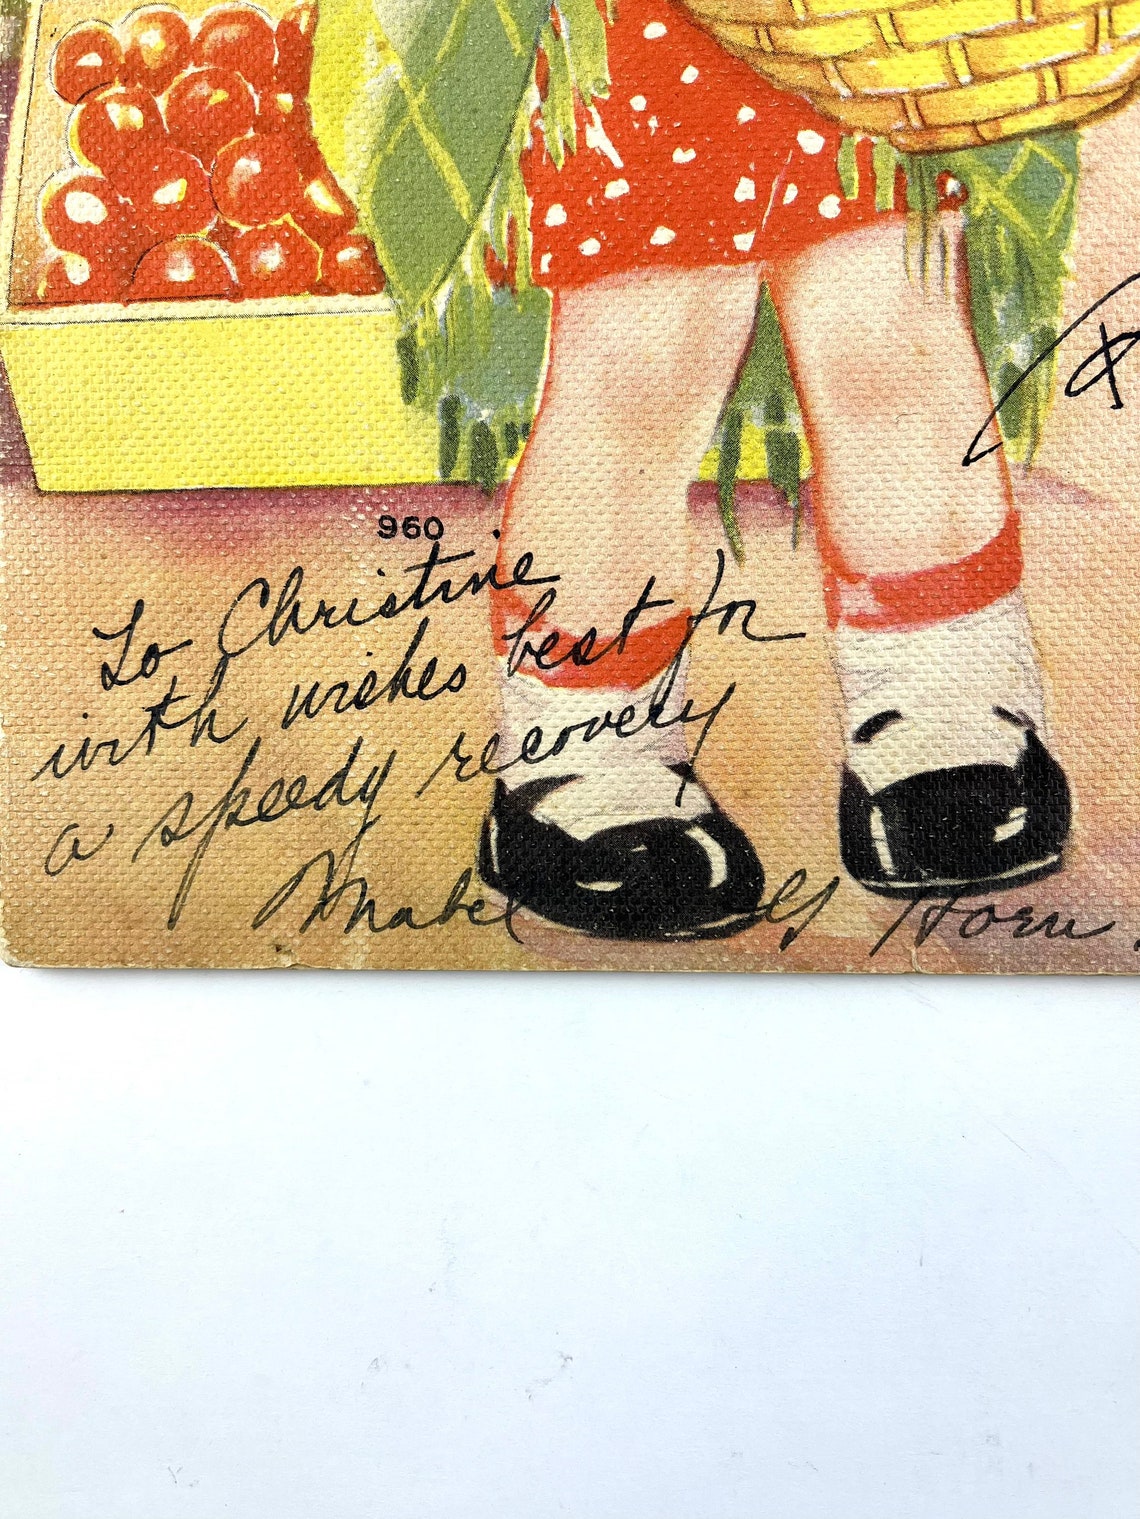 960
To Christine
with wishes best for
a speedy recovery
Mabel Horn